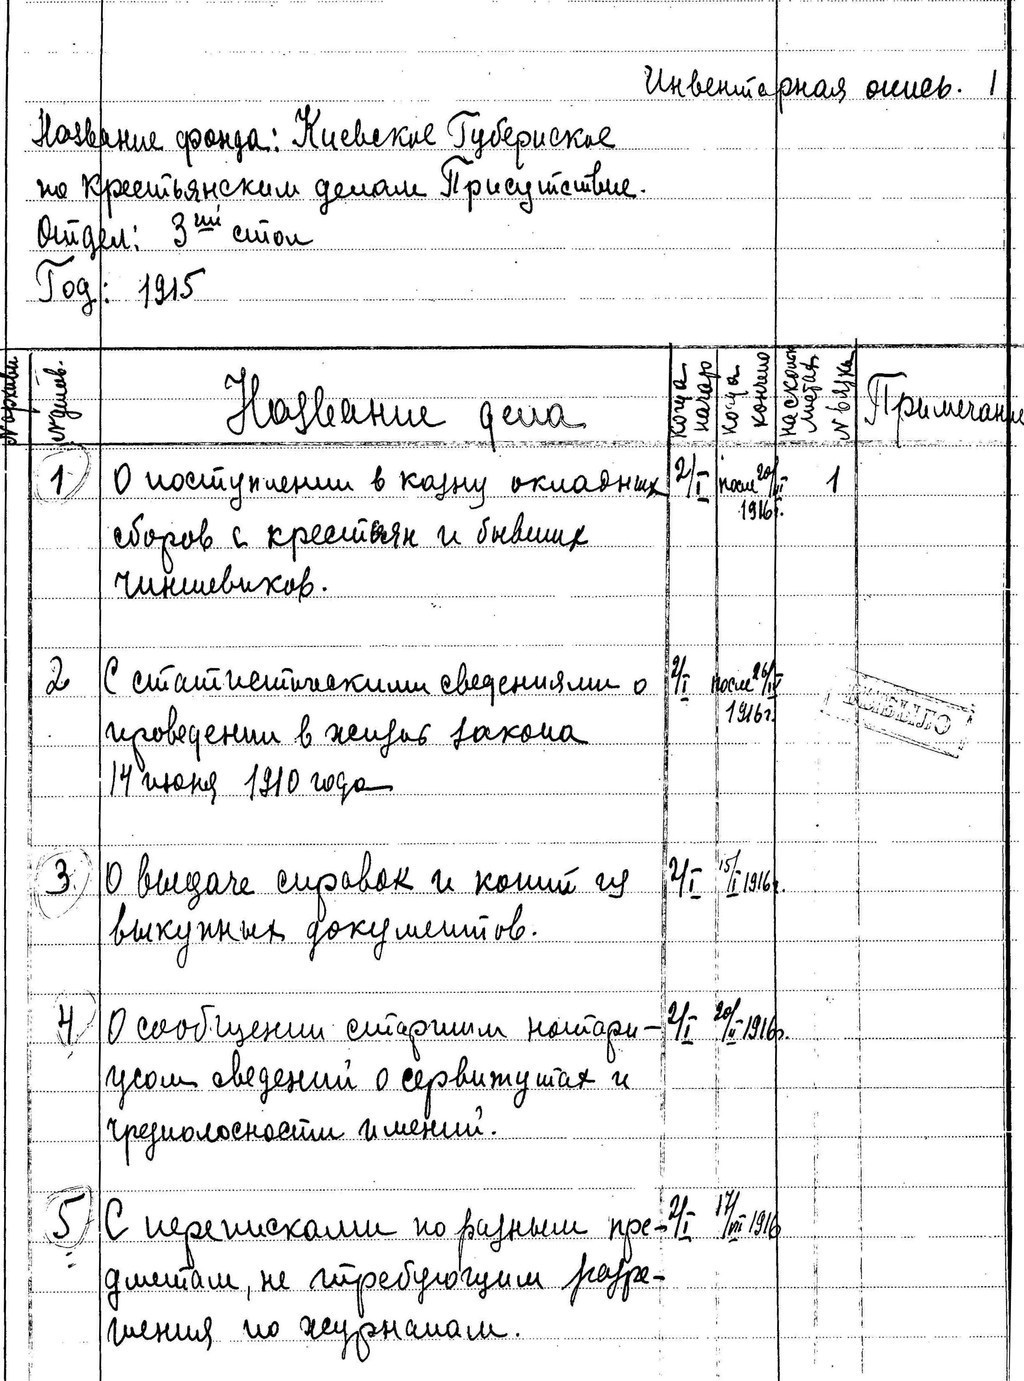 Инвентарная опись. 1
Название фонда: Киевское Губериское
по крестьянским делам Присутствие.
Отдел: 3ий стол
Год: 1915
№ архивн
№ делов.
Название дела
когда начато
когда кончено
на скольк листах
№ вязки
Примечание
1 О поступлении в казну окладных 2/I после 20/III 1916г. 1
сборов с крестьян и бывших
чиншевиков.
2 С статистическими сведениями о 2/I после 26/IV 1916г.
проведении в жизнь закона
14 июня 1910 года
ВЫБЫЛО
3 О выдаче справок и копий из 2/I 15/I 1916г.
выкупных документов.
4 О сообщении старшим нотари- 2/I 20/II 1916г.
усом сведений о сервитутах и
чрезполосности имений.
5 С переписками по разным пре- 2/I 17/VII 1916
дметам, не требующим разре-
шения по журналам.